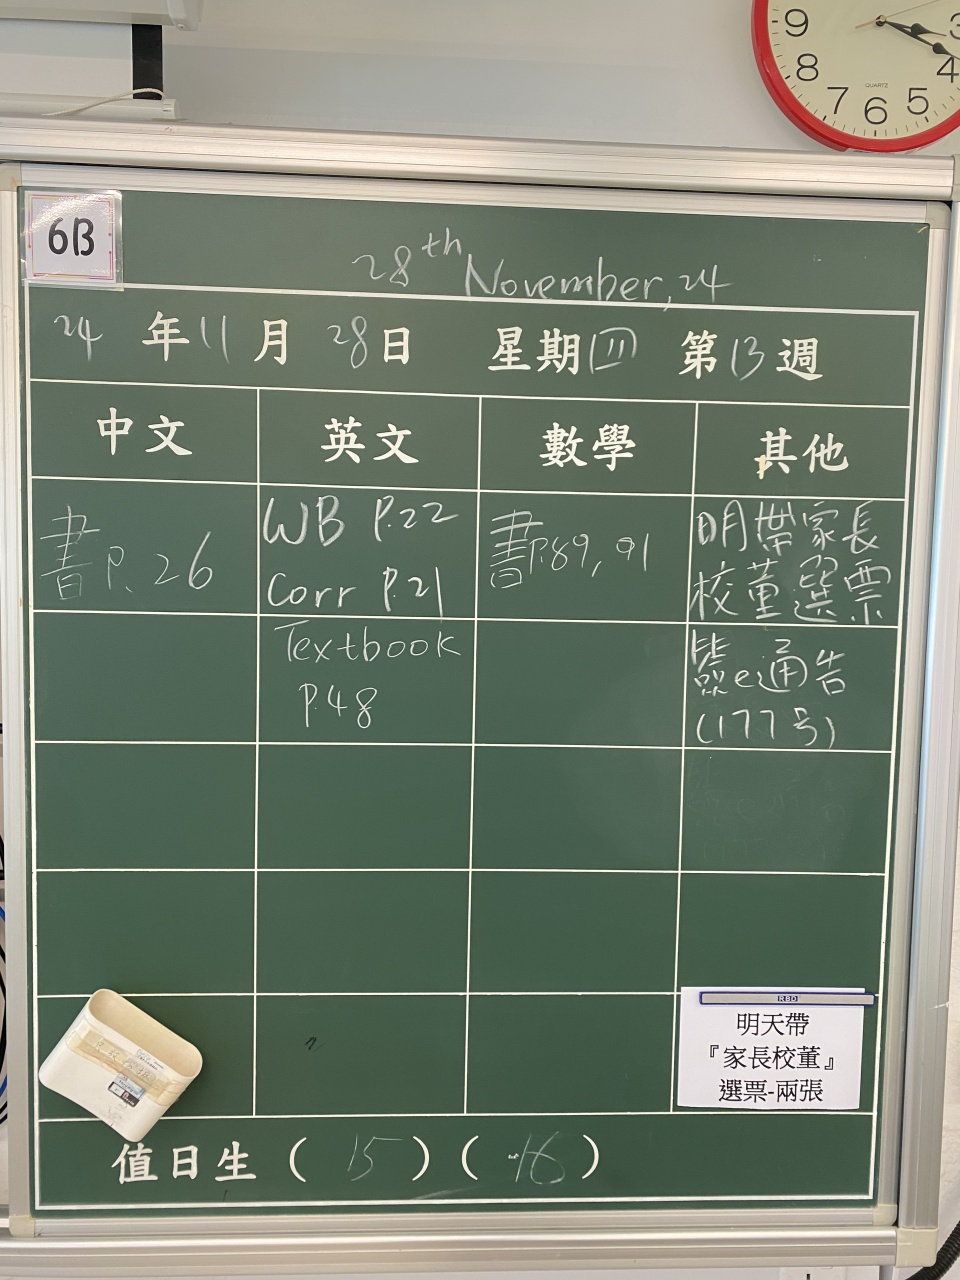 9
3
8
4
7
6
5
QUARTZ
6B
28th November, 24
24年11月28日 星期四 第13週
中文 英文 數學 其他
書P.26
WB P.22
Corr P.21
書P.89, 91
明帶家長
校董選票
Textbook
P.48
e通告
(177号)
RBD
明天帶
『家長校董』
選票-兩張
值日生(15)(16)